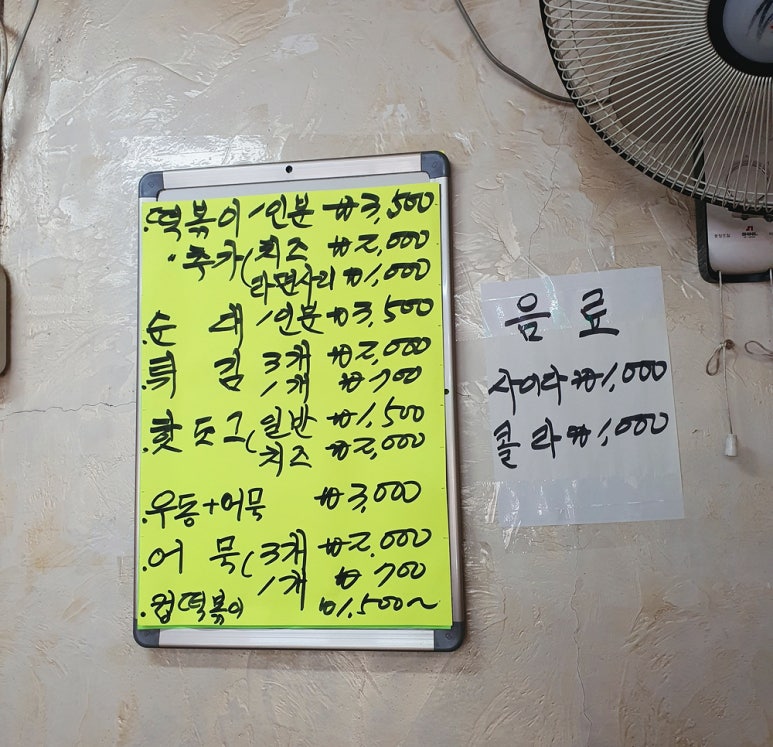 .떡볶이 1인분 ₩3,500
·추가(치즈 ₩2,000
라면사리 ₩1,000
.순 대 1인분 ₩3,500
.튀 김 3개 ₩2,000
1개 ₩700
.핫도그(일반 ₩1,500
치즈 ₩2,000
.우동+어묵 ₩3,000
.어 묵(3개 ₩2,000
1개 ₩700
.컵떡볶이 ₩1,500~
음 료
사이다 ₩1,000
콜 라 ₩1,000